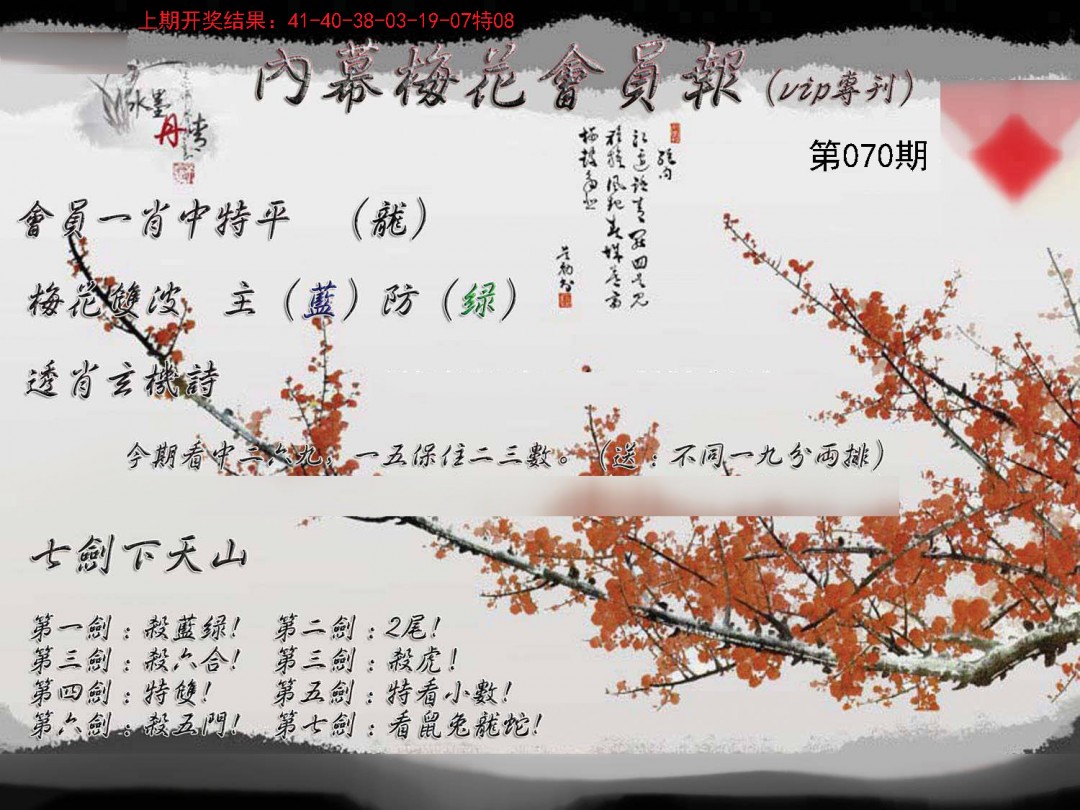 上期开奖结果：41-40-38-03-19-07特08
內幕梅花會員報（vip專刊）
水墨
丹青
第070期
會員一肖中特平　（龍）
梅花雙波　主（藍）防（绿）
透肖玄機詩
今期看中二六九，一五保住二三數。（送：不同一九分兩排）
七劍下天山
第一劍：殺藍绿！　第二劍：2尾！
第三劍：殺六合！　第三劍：殺虎！
第四劍：特雙！　第五劍：特看小數！
第六劍：殺五門！　第七劍：看鼠兔龍蛇！